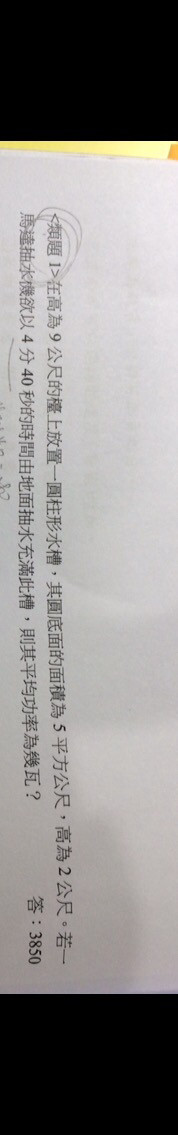 <類題 1>在高為 9 公尺的檯上放置一圓柱形水槽，其圓底面的面積為 5 平方公尺，高為 2 公尺。若一
馬達抽水機欲以 4 分 40 秒的時間由地面抽水充滿此槽，則其平均功率為幾瓦？ 答：3850